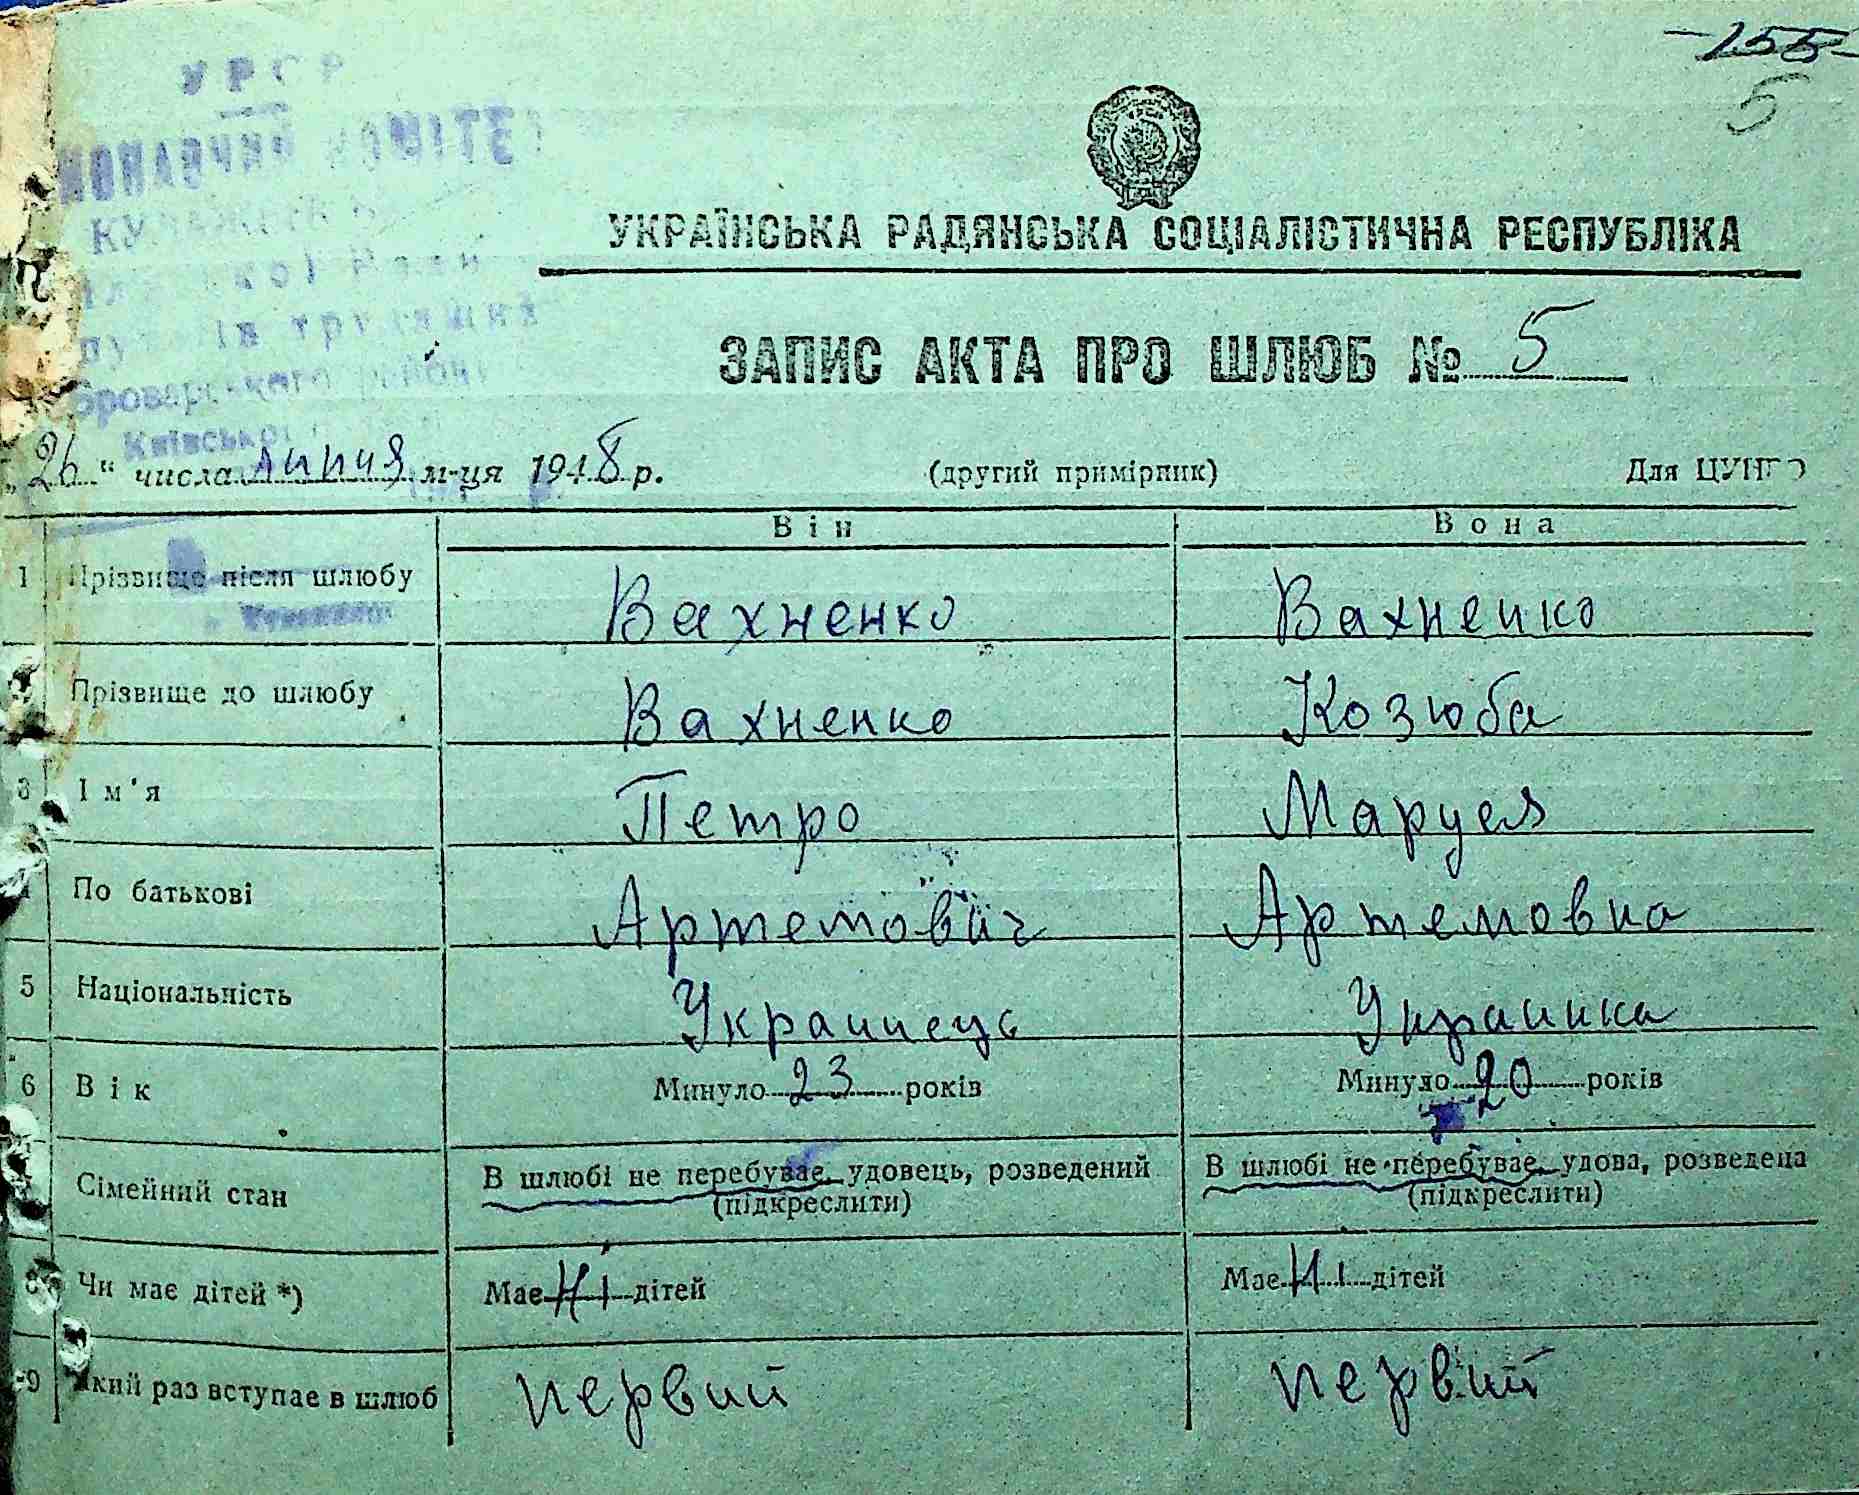 -155-
5
УРСР
КОМІТЕТ
Броварського району
Київської
УКРАЇНСЬКА РАДЯНСЬКА СОЦІАЛІСТИЧНА РЕСПУБЛІКА
ЗАПИС АКТА ПРО ШЛЮБ № 5
„26“ числа липня м-ця 1948 р. (другий примірник) Для ЦУНГО
Він Вона
1 Прізвище після шлюбу Вахненко Вахненко
Прізвище до шлюбу Вахненко Козюба
3 Ім'я Петро Маруся
По батькові Артемович Артемовна
5 Національність Украинець Украинка
6 Вік Минуло 23 років Минуло 20 років
Сімейний стан В шлюбі не перебуває, удовець, розведений В шлюбі не перебуває, удова, розведена
(підкреслити) (підкреслити)
8 Чи має дітей *) Має ні дітей Має ні дітей
9 Який раз вступає в шлюб первий первий